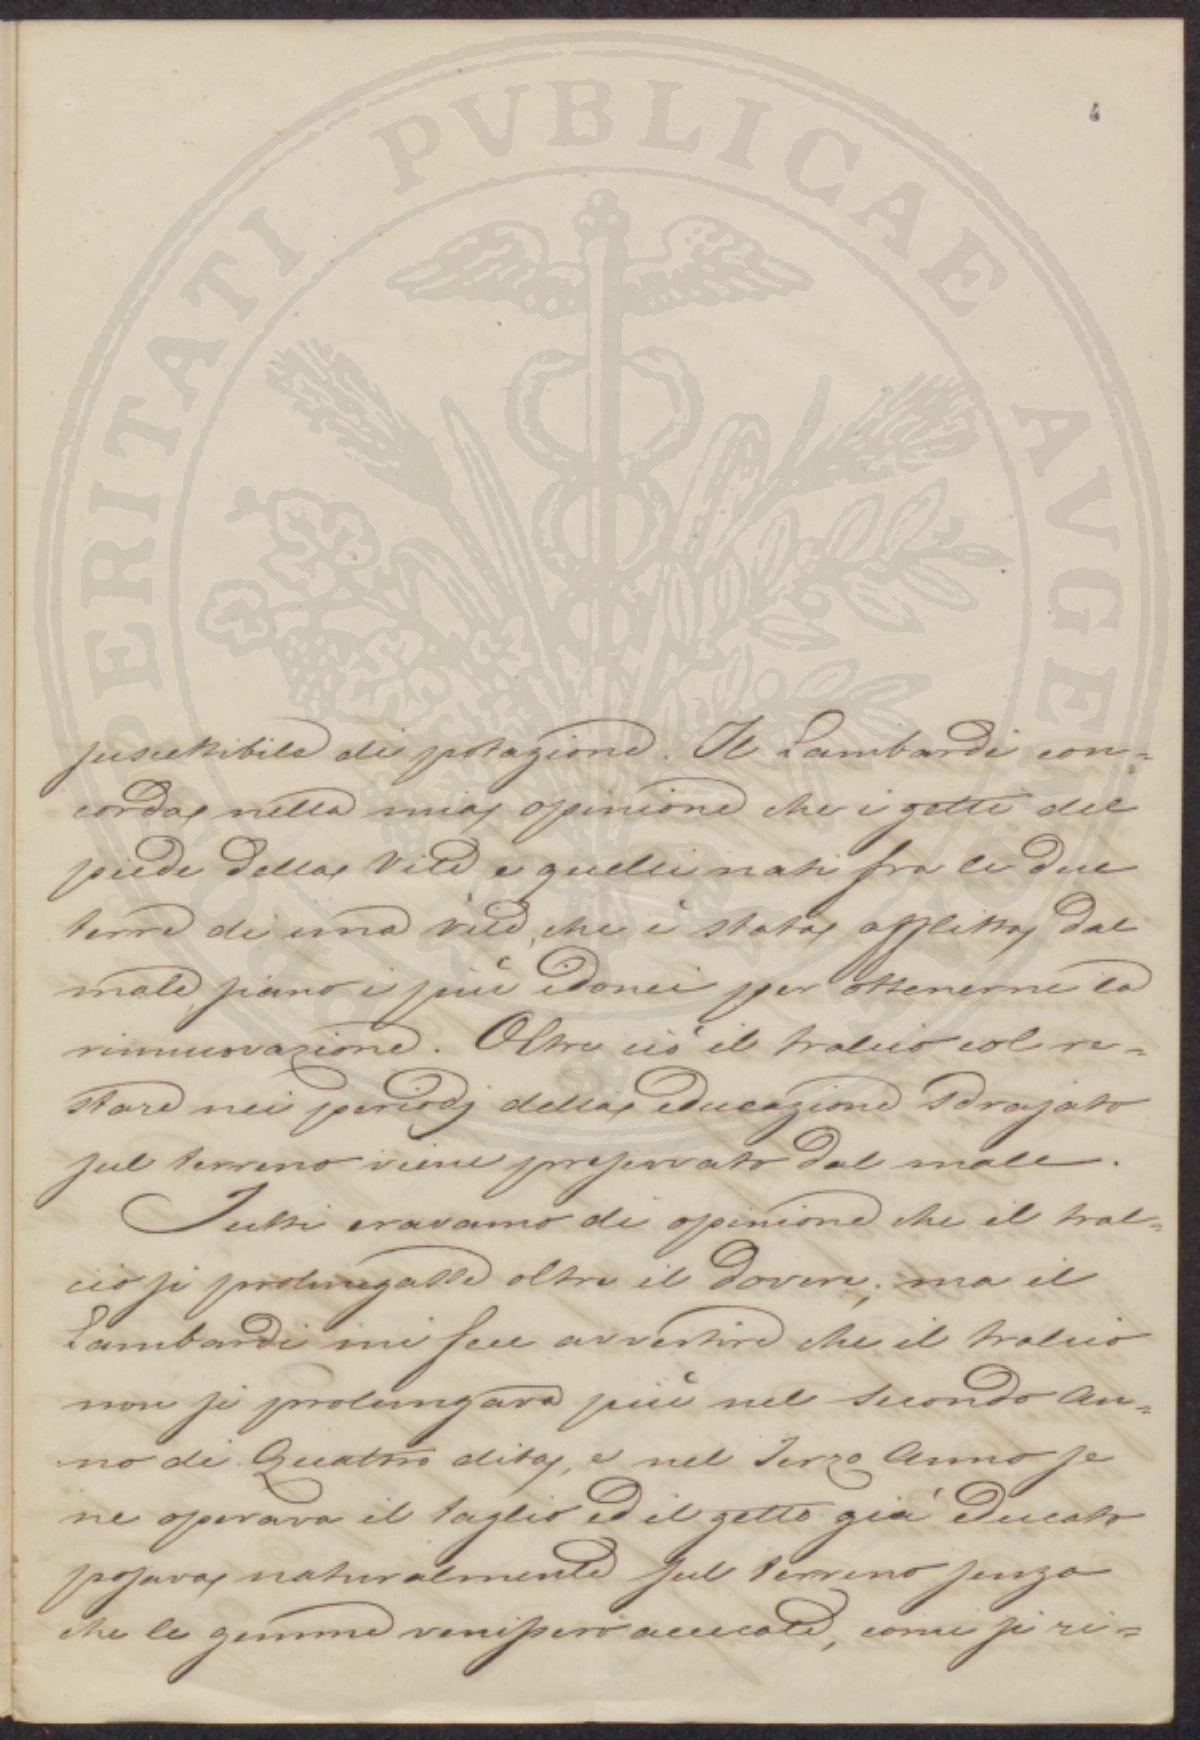 4
PROSPERITATI PVBLICAE AVGENDAE
suscettibile di potazione. Il Lambardi con=
corda nella mia opinione che i getti del
piede della Vite e quelli nati fra le due
terre di una Vite, che è stata afflitta dal
male siano i più idonei per ottenerne la
rinnuovazione. Oltre ciò il tralcio col re=
stare nei periodj della educazione sdrajato
sul terreno viene preservato dal male.
Tutti eravamo di opinione che il tral=
cio si prolungasse oltre il dovere; ma il
Lambardi mi fece avvertire che il tralcio
non si prolungava più nel secondo An=
no di Quattro dita, e nel Terzo Anno se
ne operava il taglio ed il getto già educato
posava naturalmente sul terreno senza
che le gemme venissero accecate, come si ri=